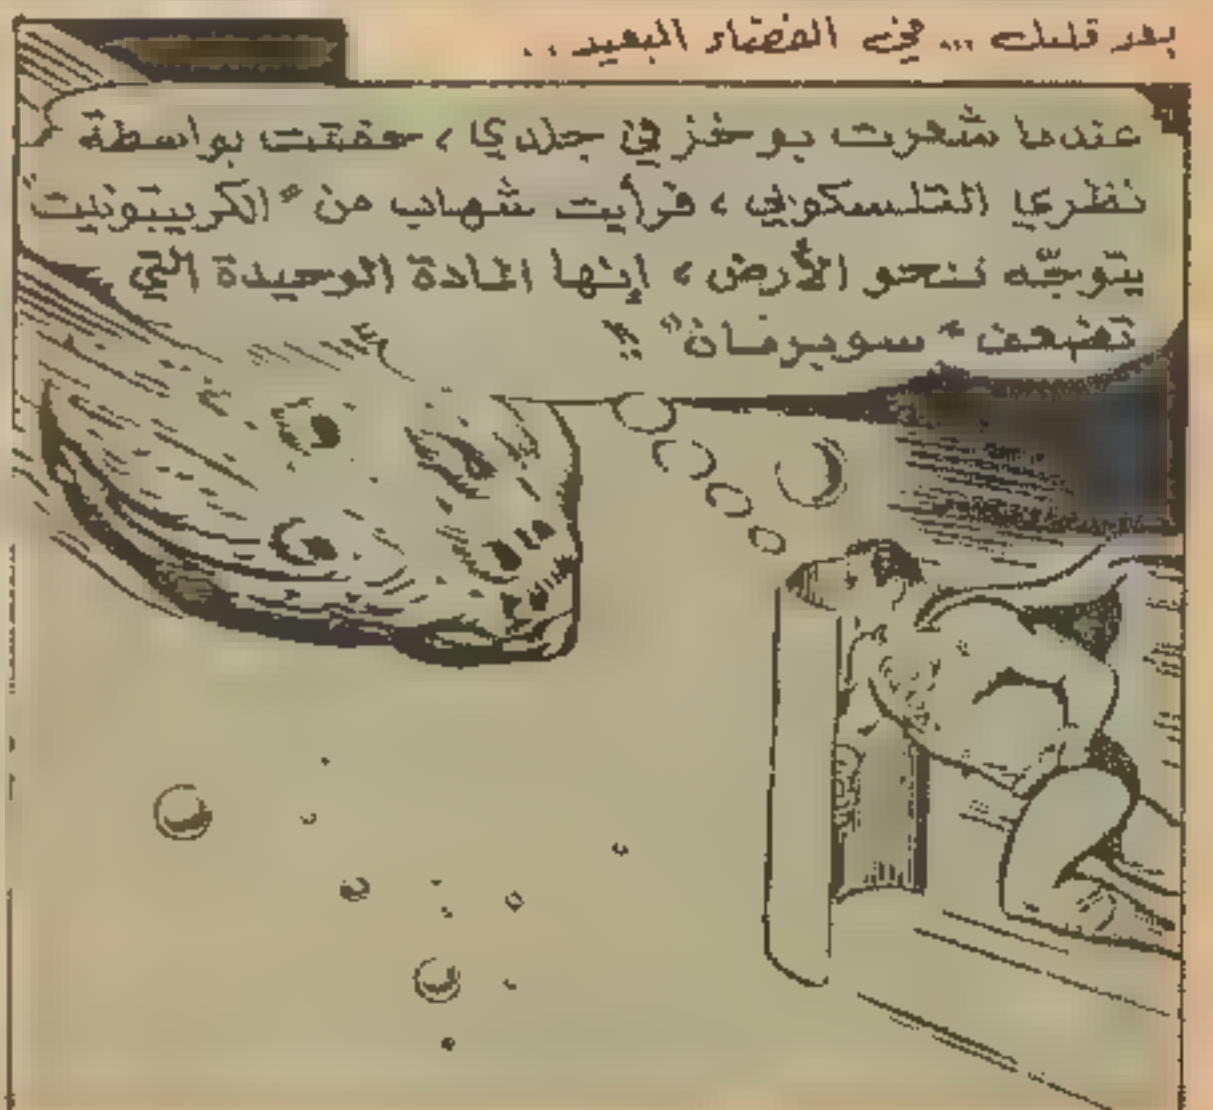 بعد قليل ... في الفضاء البعيد ..
عندما شعرت بوخز في جلدي ، حققت بواسطة
نظري التلسكوبي ، فرأيت شهاب من "الكريبتونيت"
يتوجّه نحو الأرض ، إنها المادة الوحيدة التي
تضعف "سوبرمان" !!